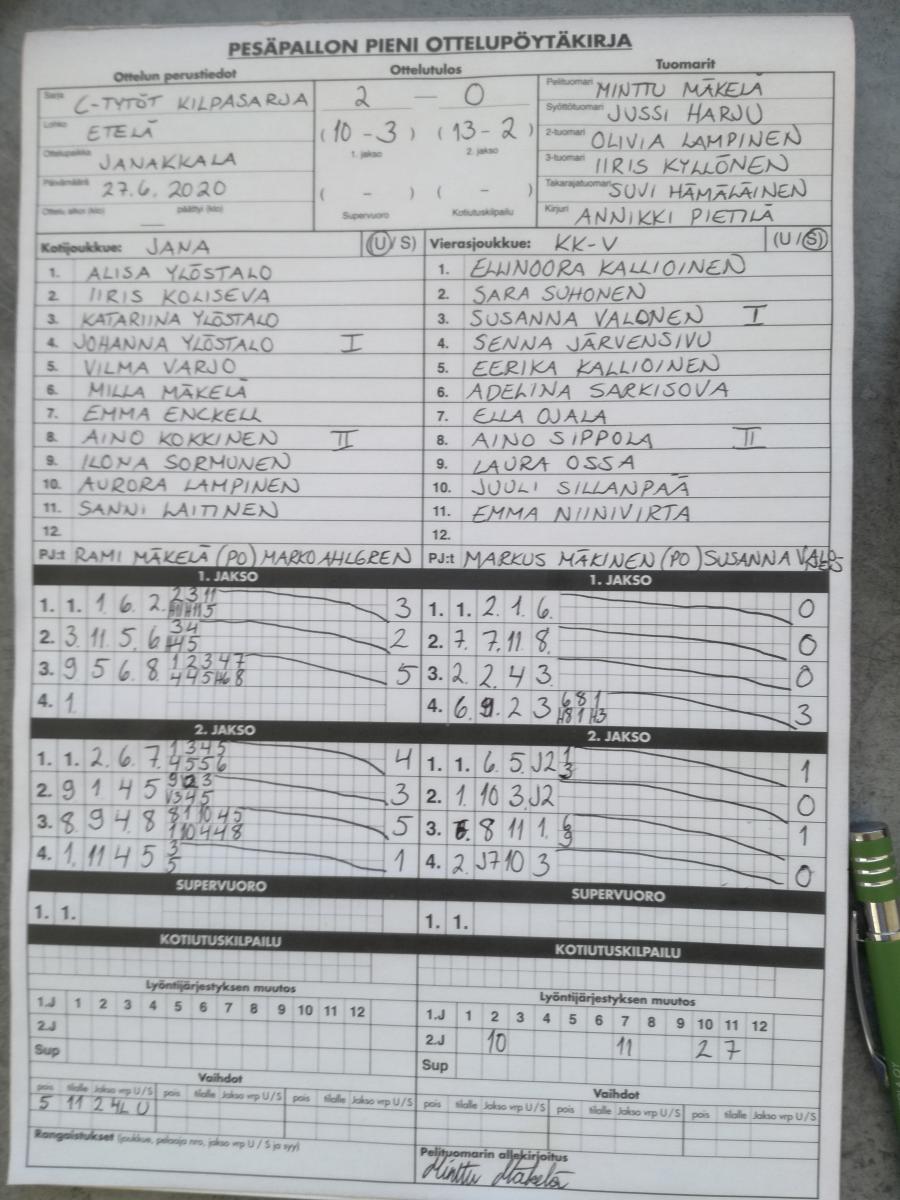 PESÄPALLON PIENI OTTELUPÖYTÄKIRJA
Ottelun perustiedot Ottelutulos Tuomarit
Sarja C-TYTÖT KILPASARJA 2 — 0 Pelituomari MINTTU MÄKELÄ
Syöttötuomari JUSSI HARJU
Lohko ETELÄ (10 - 3) (13 - 2) 2-tuomari OLIVIA LAMPINEN
1. jakso 2. jakso
Ottelupaikka JANAKKALA 3-tuomari IIRIS KYLLÖNEN
Päivämäärä 27.6. 2020 ( - ) ( - ) Takarajatuomari SUVI HÄMÄLÄINEN
Ottelu alkoi (klo) päättyi (klo) Supervuoro Kotiutuskilpailu Kirjuri ANNIKKI PIETILÄ
Kotijoukkue: JANA (U / S) Vierasjoukkue: KK-V (U / S)
1. ALISA YLÖSTALO 1. ELLINOORA KALLIOINEN
2. IIRIS KOLISEVA 2. SARA SUHONEN
3. KATARIINA YLÖSTALO 3. SUSANNA VALONEN I
4. JOHANNA YLÖSTALO I 4. SENNA JÄRVENSIVU
5. VILMA VARJO 5. EERIKA KALLIOINEN
6. MILLA MÄKELÄ 6. ADELINA SARKISOVA
7. EMMA ENCKELL 7. ELLA OJALA
8. AINO KOKKINEN II 8. AINO SIPPOLA II
9. ILONA SORMUNEN 9. LAURA OSSA
10. AURORA LAMPINEN 10. JUULI SILLANPÄÄ
11. SANNI LAITINEN 11. EMMA NIINIVIRTA
12. 12.
PJ:t RAMI MÄKELÄ (PO) MARKO AHLGREN PJ:t MARKUS MÄKINEN (PO) SUSANNA
1. JAKSO 1. JAKSO
1. 1. 1 6. 2. 2 3 11 3 1. 1. 2. 1. 6. 0
2. 3. 11. 5. 6 3 4 2 2. 7. 7. 11 8. 0
H4 5
3. 9 5 6. 8. 1 2 3 4 7 5 3. 2. 2 4 3. 0
4 4 5 H6 8
4. 1. 4. 6. 9. 2 3 6 8 1 3
H8 1 H3
2. JAKSO 2. JAKSO
1. 1. 2. 6. 7. 1 3 4 5 4 1. 1. 6. 5. J2 1 1
4 5 5 6 3
2. 9 1 4 5 3 2. 1. 10 3. J2 0
V3 4 5
3. 8. 9 4. 8 8 1 10 4 5 5 3. 8 11 1. 6 1
1 10 4 4 8 9
4. 1. 11 4 5 3 1 4. 2. J7 10 3 0
5
SUPERVUORO SUPERVUORO
1. 1. 1. 1.
KOTIUTUSKILPAILU KOTIUTUSKILPAILU
Lyöntijärjestyksen muutos Lyöntijärjestyksen muutos
1.J 1 2 3 4 5 6 7 8 9 10 11 12 1.J 1 2 3 4 5 6 7 8 9 10 11 12
2.J 2.J 10 11 2 7
Sup Sup
Vaihdot Vaihdot
pois tilalle Jakso vrp U/S pois tilalle Jakso vrp U/S pois tilalle Jakso vrp U/S pois tilalle Jakso vrp U/S pois tilalle Jakso vrp U/S pois tilalle Jakso vrp U/S
5 11 2 4L U
Rangaistukset (joukkue, pelaaja nro, jakso vrp U / S ja syy) Pelituomarin allekirjoitus
Minttu Mäkelä